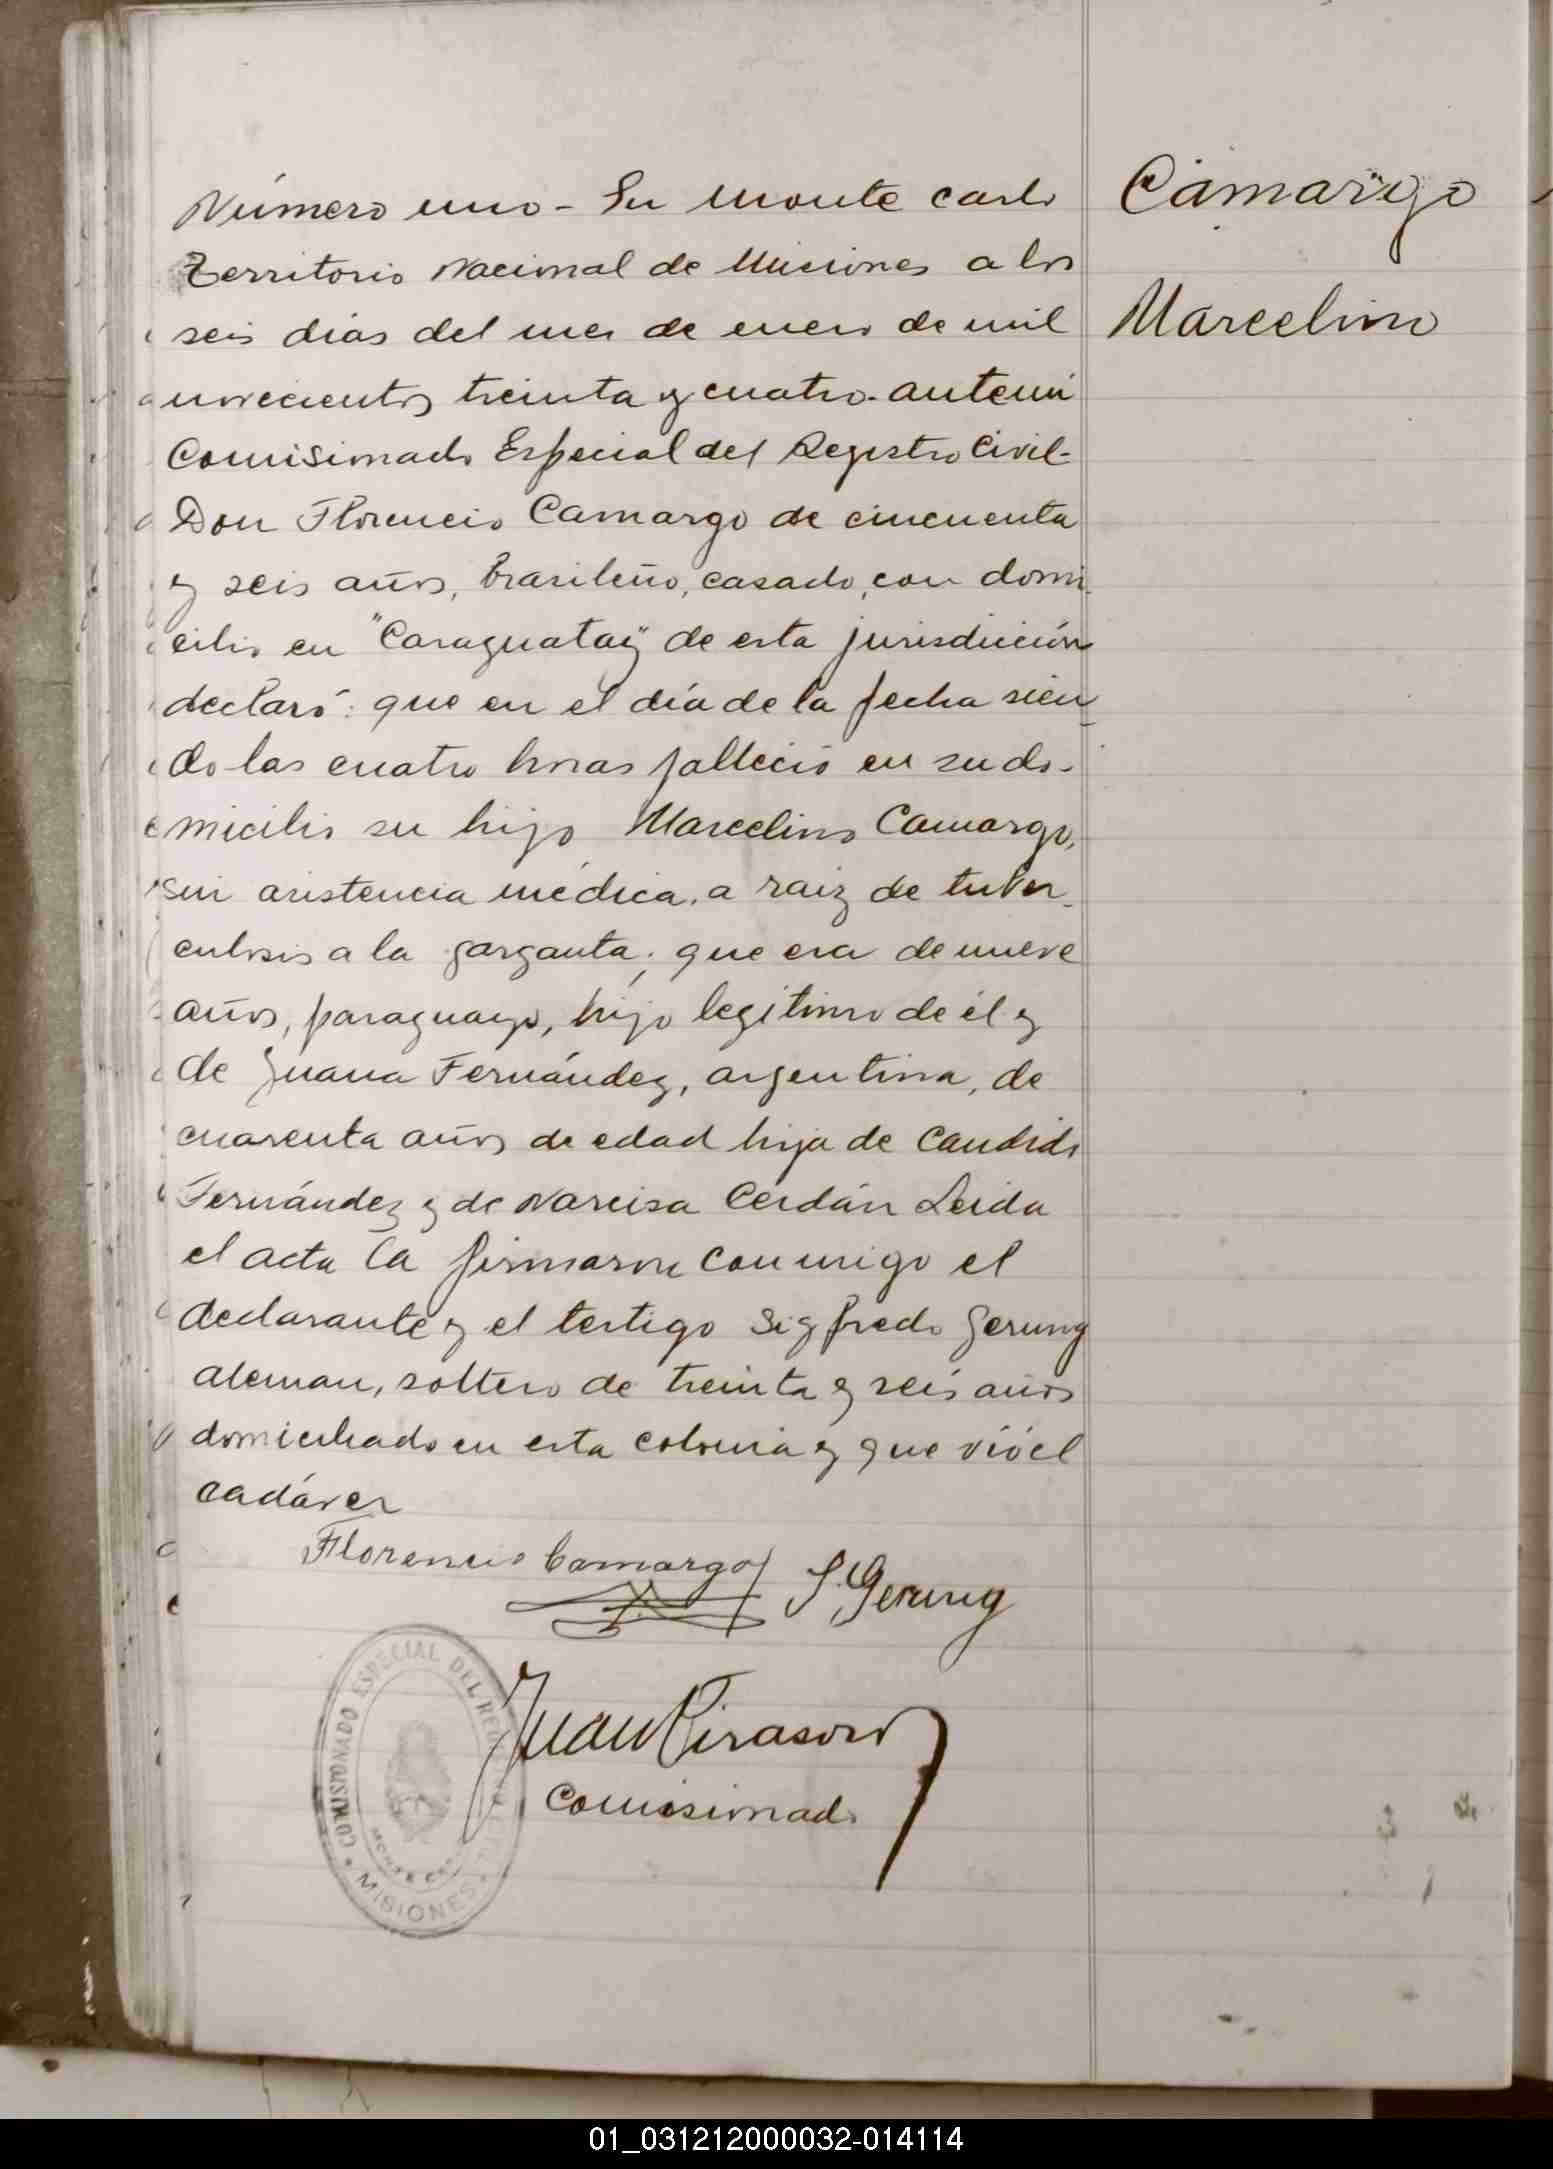 Número uno - En Monte Carlo
Territorio Nacional de Misiones a los
seis días del mes de enero de mil
novecientos treinta y cuatro. ante mi
Comisionado Especial del Registro Civil-
Don Florencio Camargo de cincuenta
y seis años, brasileño, casado, con domi-
cilio en "Caraguatay" de esta jurisdicción
declaró: que en el día de la fecha sien-
do las cuatro horas falleció en su do-
micilio su hijo Marcelino Camargo,
sin asistencia médica, a raiz de tuber-
culosis a la garganta; que era de nueve
años, paraguayo, hijo legítimo de él y
de Juana Fernández, argentina, de
cuarenta años de edad hija de Candido
Fernández y de Narcisa Cerdán Leida
el acta la firmaron conmigo el
declarante y el testigo Sigfredo Gerung
aleman, soltero de treinta y seis años
domiciliado en esta colonia y que vió el
cadáver
Florencio Camargo
S. Gerung
Juan Pirasoro
Comisionado
COMISIONADO ESPECIAL DEL
MONTE
MISIONES
Camargo
Marcelino
01_031212000032-014114